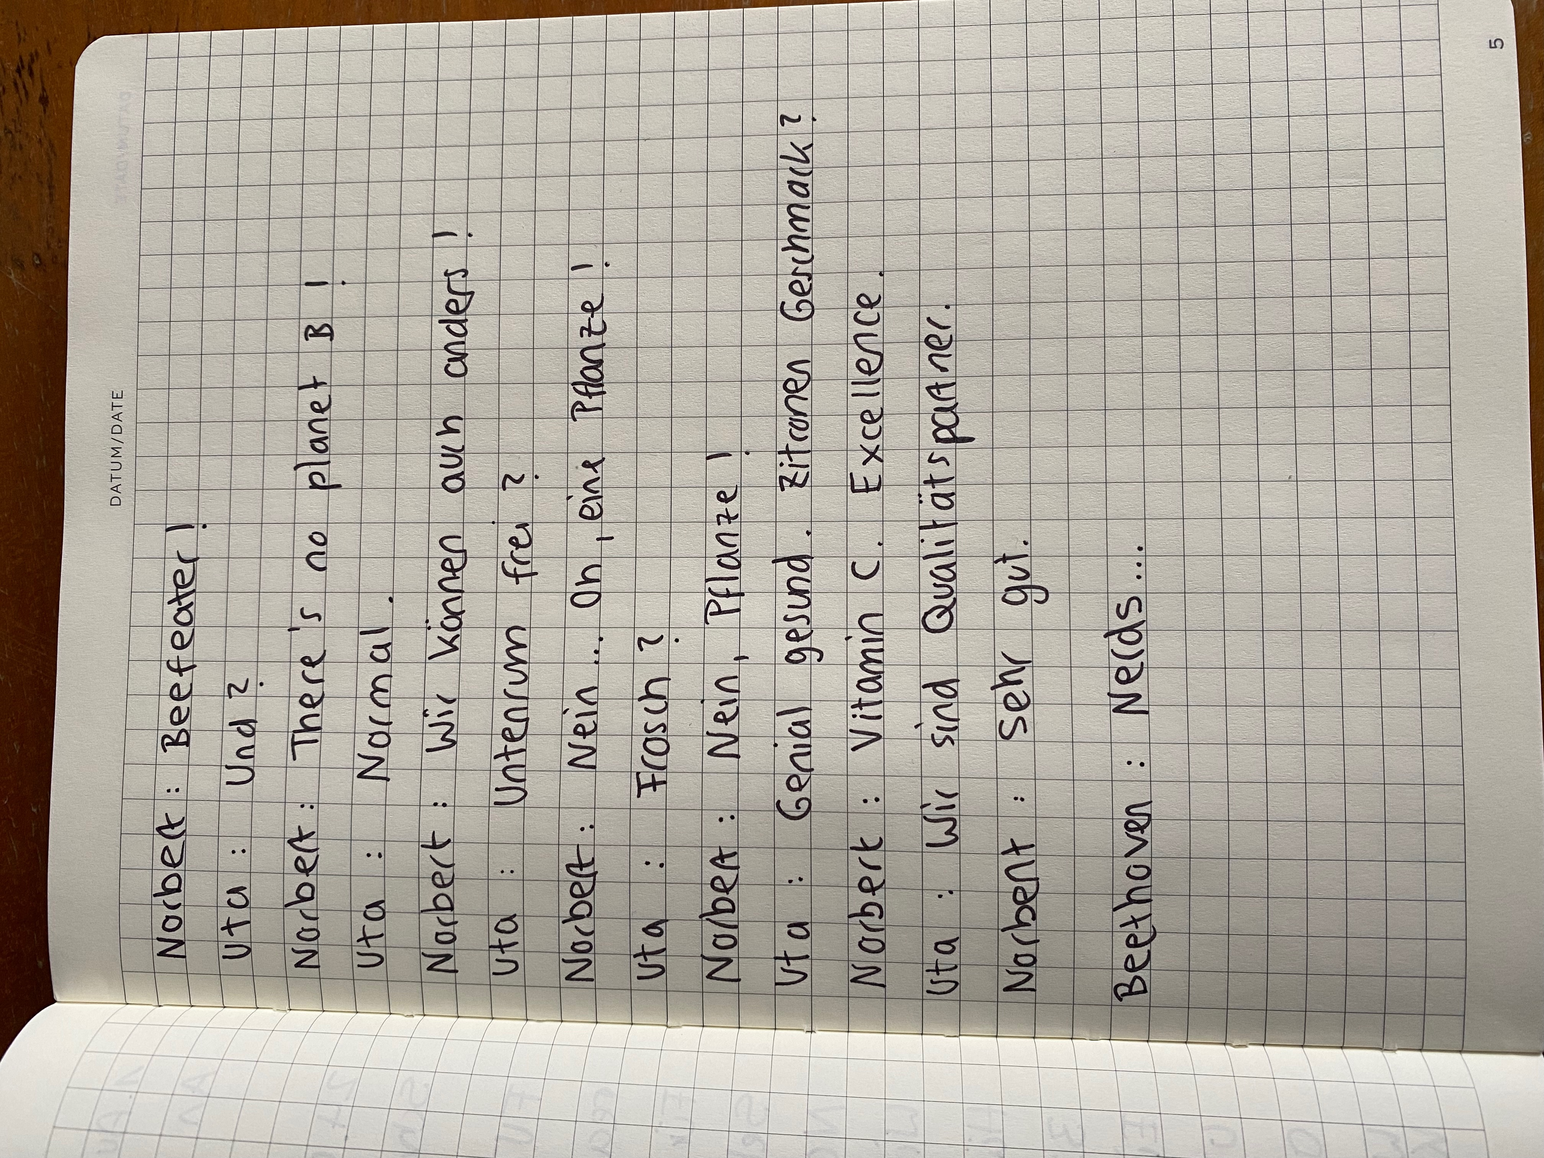 DATUM/DATE
Norbert : Beefeater!
Uta : Und?
Norbert : There's no planet B!
Uta : Normal.
Norbert : Wir können auch anders!
Uta : Untenrum frei?
Norbert : Nein ... Oh, eine Pflanze!
Uta : Frosch?
Norbert : Nein, Pflanze!
Uta : Genial gesund. Zitronen Geschmack?
Norbert : Vitamin C. Excellence.
Uta : Wir sind Qualitätspartner.
Norbert : Sehr gut.
Beethoven : Nerds...
5